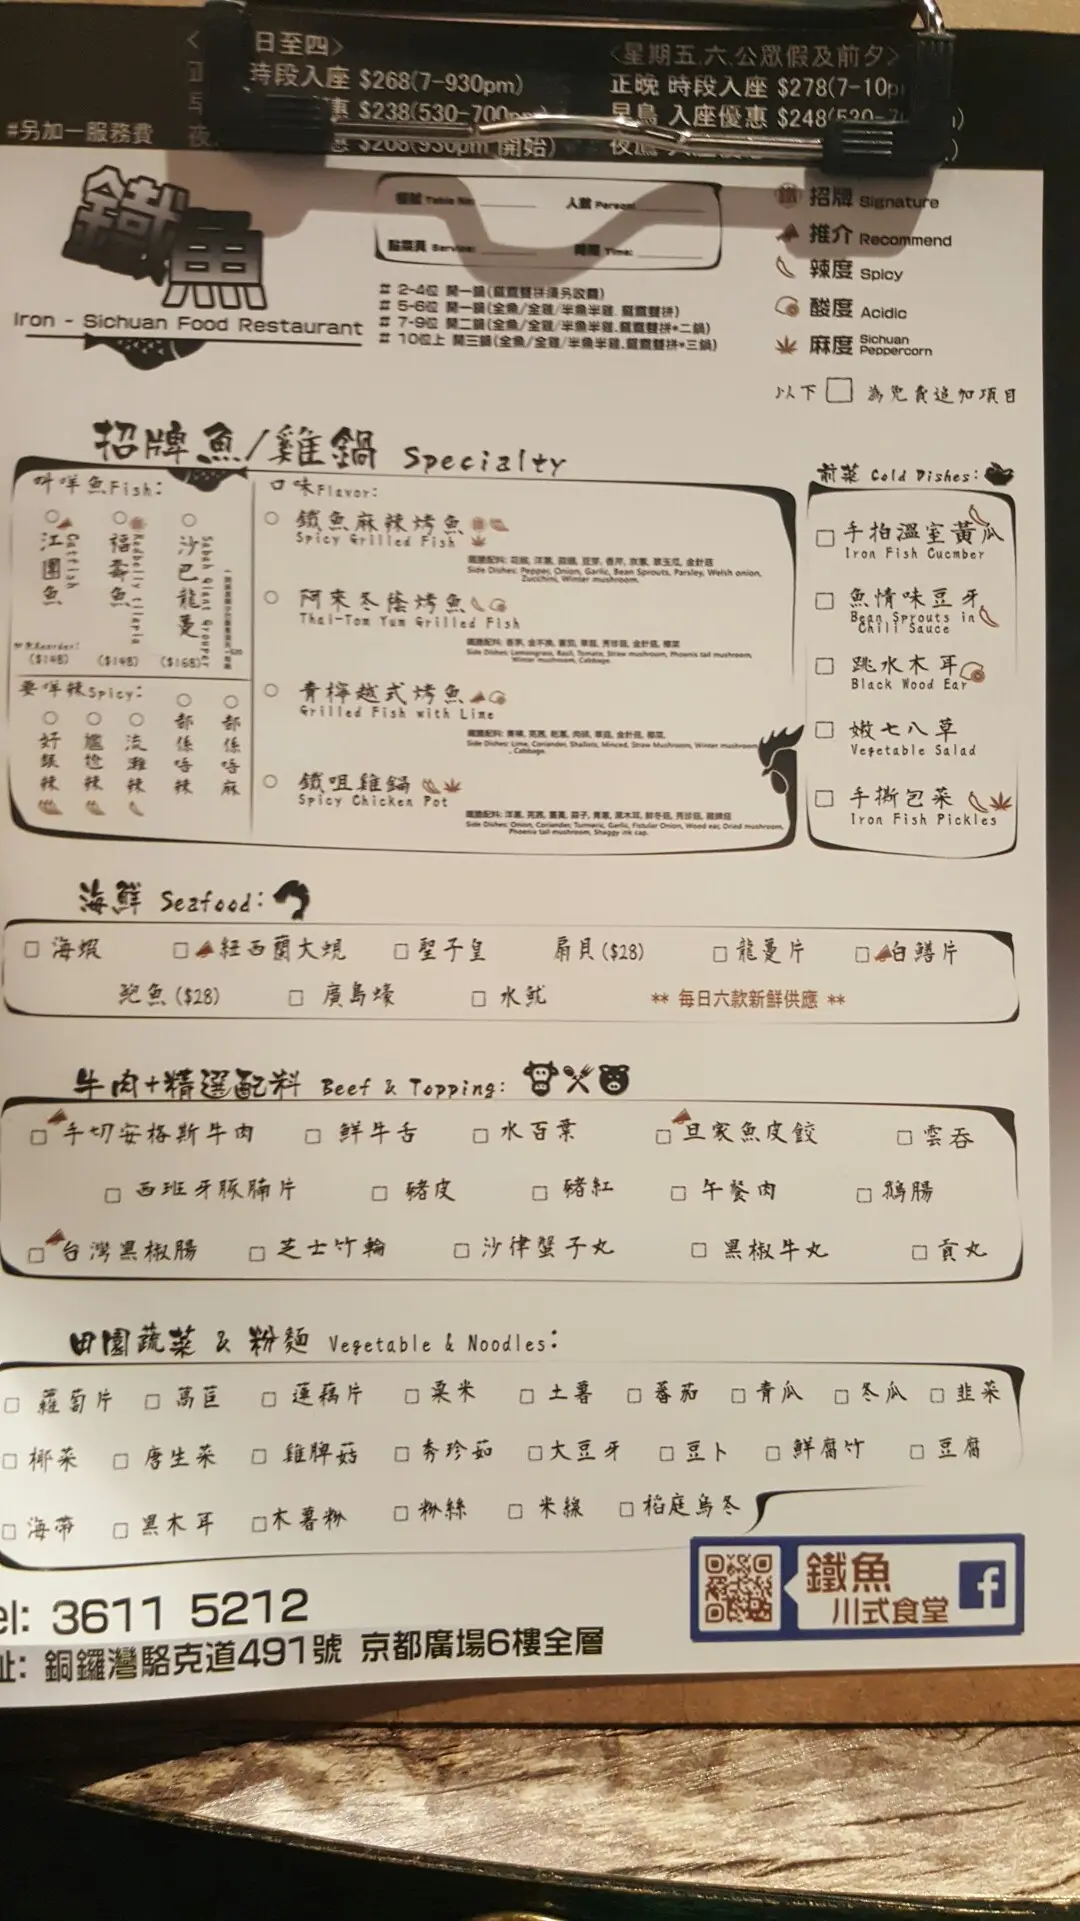 日至四>
時段入座 $268(7-930pm)
惠 $238(530-700pm)
#另加一服務費
惠 $208(930pm 開始)
<星期五,六,公眾假及前夕>
正晚 時段入座 $278(7-10p
早鳥 入座優惠 $248(530-7
鐵魚
Iron - Sichuan Food Restaurant
檯號 Table No: 人數 Person:
點菜員 Server: 時間 Time:
# 2-4位 開一鍋(鴛鴦雙拼須另收費)
# 5-6位 開一鍋(全魚/全雞/半魚半雞.鴛鴦雙拼)
# 7-9位 開二鍋(全魚/全雞/半魚半雞.鴛鴦雙拼*二鍋)
# 10位上 開三鍋(全魚/全雞/半魚半雞.鴛鴦雙拼*三鍋)
招牌 Signature
推介 Recommend
辣度 Spicy
酸度 Acidic
麻度 Sichuan Peppercorn
以下 □ 為免費追加項目
招牌魚/雞鍋 Specialty
叫咩魚Fish:
江團魚 Catfish
福壽魚 Redbelly tilapia
沙巴龍躉 Sabah Giant Grouper
($148) ($148) ($168)
要咩辣Spicy:
好銀辣
尷尬辣
流灘辣
都係唔辣
都係唔麻
口味Flavor:
鐵魚麻辣烤魚
Spicy Grilled Fish
Side Dishes: Pepper, Onion, Garlic, Bean Sprouts, Parsley, Welsh onion,
Zucchini, Winter mushroom.
阿來冬蔭烤魚
Thai-Tom Yum Grilled Fish
Side Dishes: Lemongrass, Basil, Tomato, Straw mushroom, Phoenix tail mushroom,
Winter mushroom, Cabbage.
青檸越式烤魚
Grilled Fish with Lime
Side Dishes: Lime, Coriander, Shallots, Minced, Straw Mushroom, Winter mushroom
, Cabbage.
鐵咀雞鍋
Spicy Chicken Pot
Side Dishes: Onion, Coriander, Turmeric, Garlic, Fistular Onion, Wood ear, Dried mushroom,
Phoenix tail mushroom, Shaggy ink cap.
前菜 Cold Dishes:
手拍溫室黃瓜
Iron Fish Cucmber
魚情味豆牙
Bean Sprouts in
Chili Sauce
跳水木耳
Black Wood Ear
嫩七八草
Vegetable Salad
手撕包菜
Iron Fish Pickles
海鮮 Seafood:
□ 海蝦 □ 紐西蘭大蜆 □ 聖子皇 扇貝($28) □ 龍躉片 □ 白鱔片
鮑魚($28) □ 廣島蠔 □ 水魷 ** 每日六款新鮮供應 **
牛肉+精選配料 Beef & Topping:
□ 手切安格斯牛肉 □ 鮮牛舌 □ 水百葉 □ 旦家魚皮餃 □ 雲吞
□ 西班牙豚腩片 □ 豬皮 □ 豬紅 □ 午餐肉 □ 鵝腸
□ 台灣黑椒腸 □ 芝士竹輪 □ 沙律蟹子丸 □ 黑椒牛丸 □ 貢丸
田園蔬菜 & 粉麵 Vegetable & Noodles:
□ 蘿蔔片 □ 萵苣 □ 蓮藕片 □ 粟米 □ 土薯 □ 蕃茄 □ 青瓜 □ 冬瓜 □ 韭菜
□ 椰菜 □ 唐生菜 □ 雞脾菇 □ 秀珍茹 □ 大豆牙 □ 豆卜 □ 鮮腐竹 □ 豆腐
□ 海帶 □ 黑木耳 □ 木薯粉 □ 粉絲 □ 米線 □ 稻庭烏冬
el: 3611 5212
址: 銅鑼灣駱克道491號 京都廣場6樓全層
鐵魚
川式食堂
f